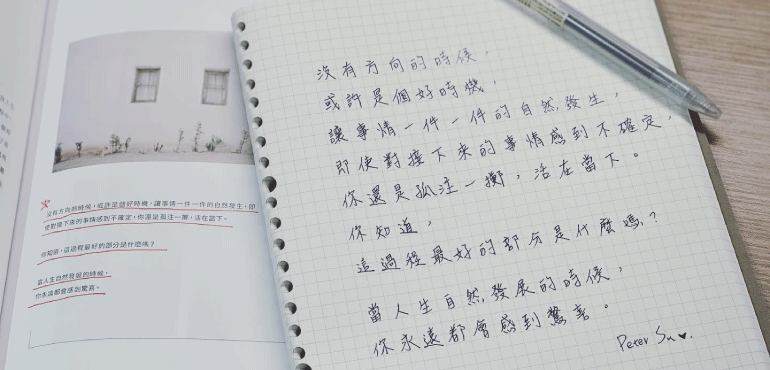 沒有方向的時候，或許是個好時機，讓事情一件一件的自然發生，即
使對接下來的事情感到不確定，你還是孤注一擲，活在當下。
你知道，這過程最好的部分是什麼嗎？
當人生自然發展的時候，
你永遠都會感到驚喜。
沒有方向的時候，
或許是個好時機，
讓事情一件一件的自然發生，
即使對接下來的事情感到不確定，
你還是孤注一擲，活在當下。
你知道，
這過程最好的部分是什麼嗎？
當人生自然發展的時候，
你永遠都會感到驚喜。
Peter Su ♥.